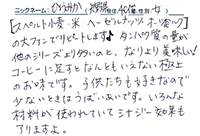 ニックネーム: ひろみか 福岡 40代 女
【スペルト小麦・米 ヘーゼルナッツ オーツ
の大ファンでリピートします♪ タンパク質の量が
他のシリーズより多いのと、なにより美味しい!
コーヒーに足すとなんともいえない極上
のお味です。子供たちも好きなので
少ないときはうばいあいです。いろんな
材料が使われていてミナジー効果も
ありますよ。